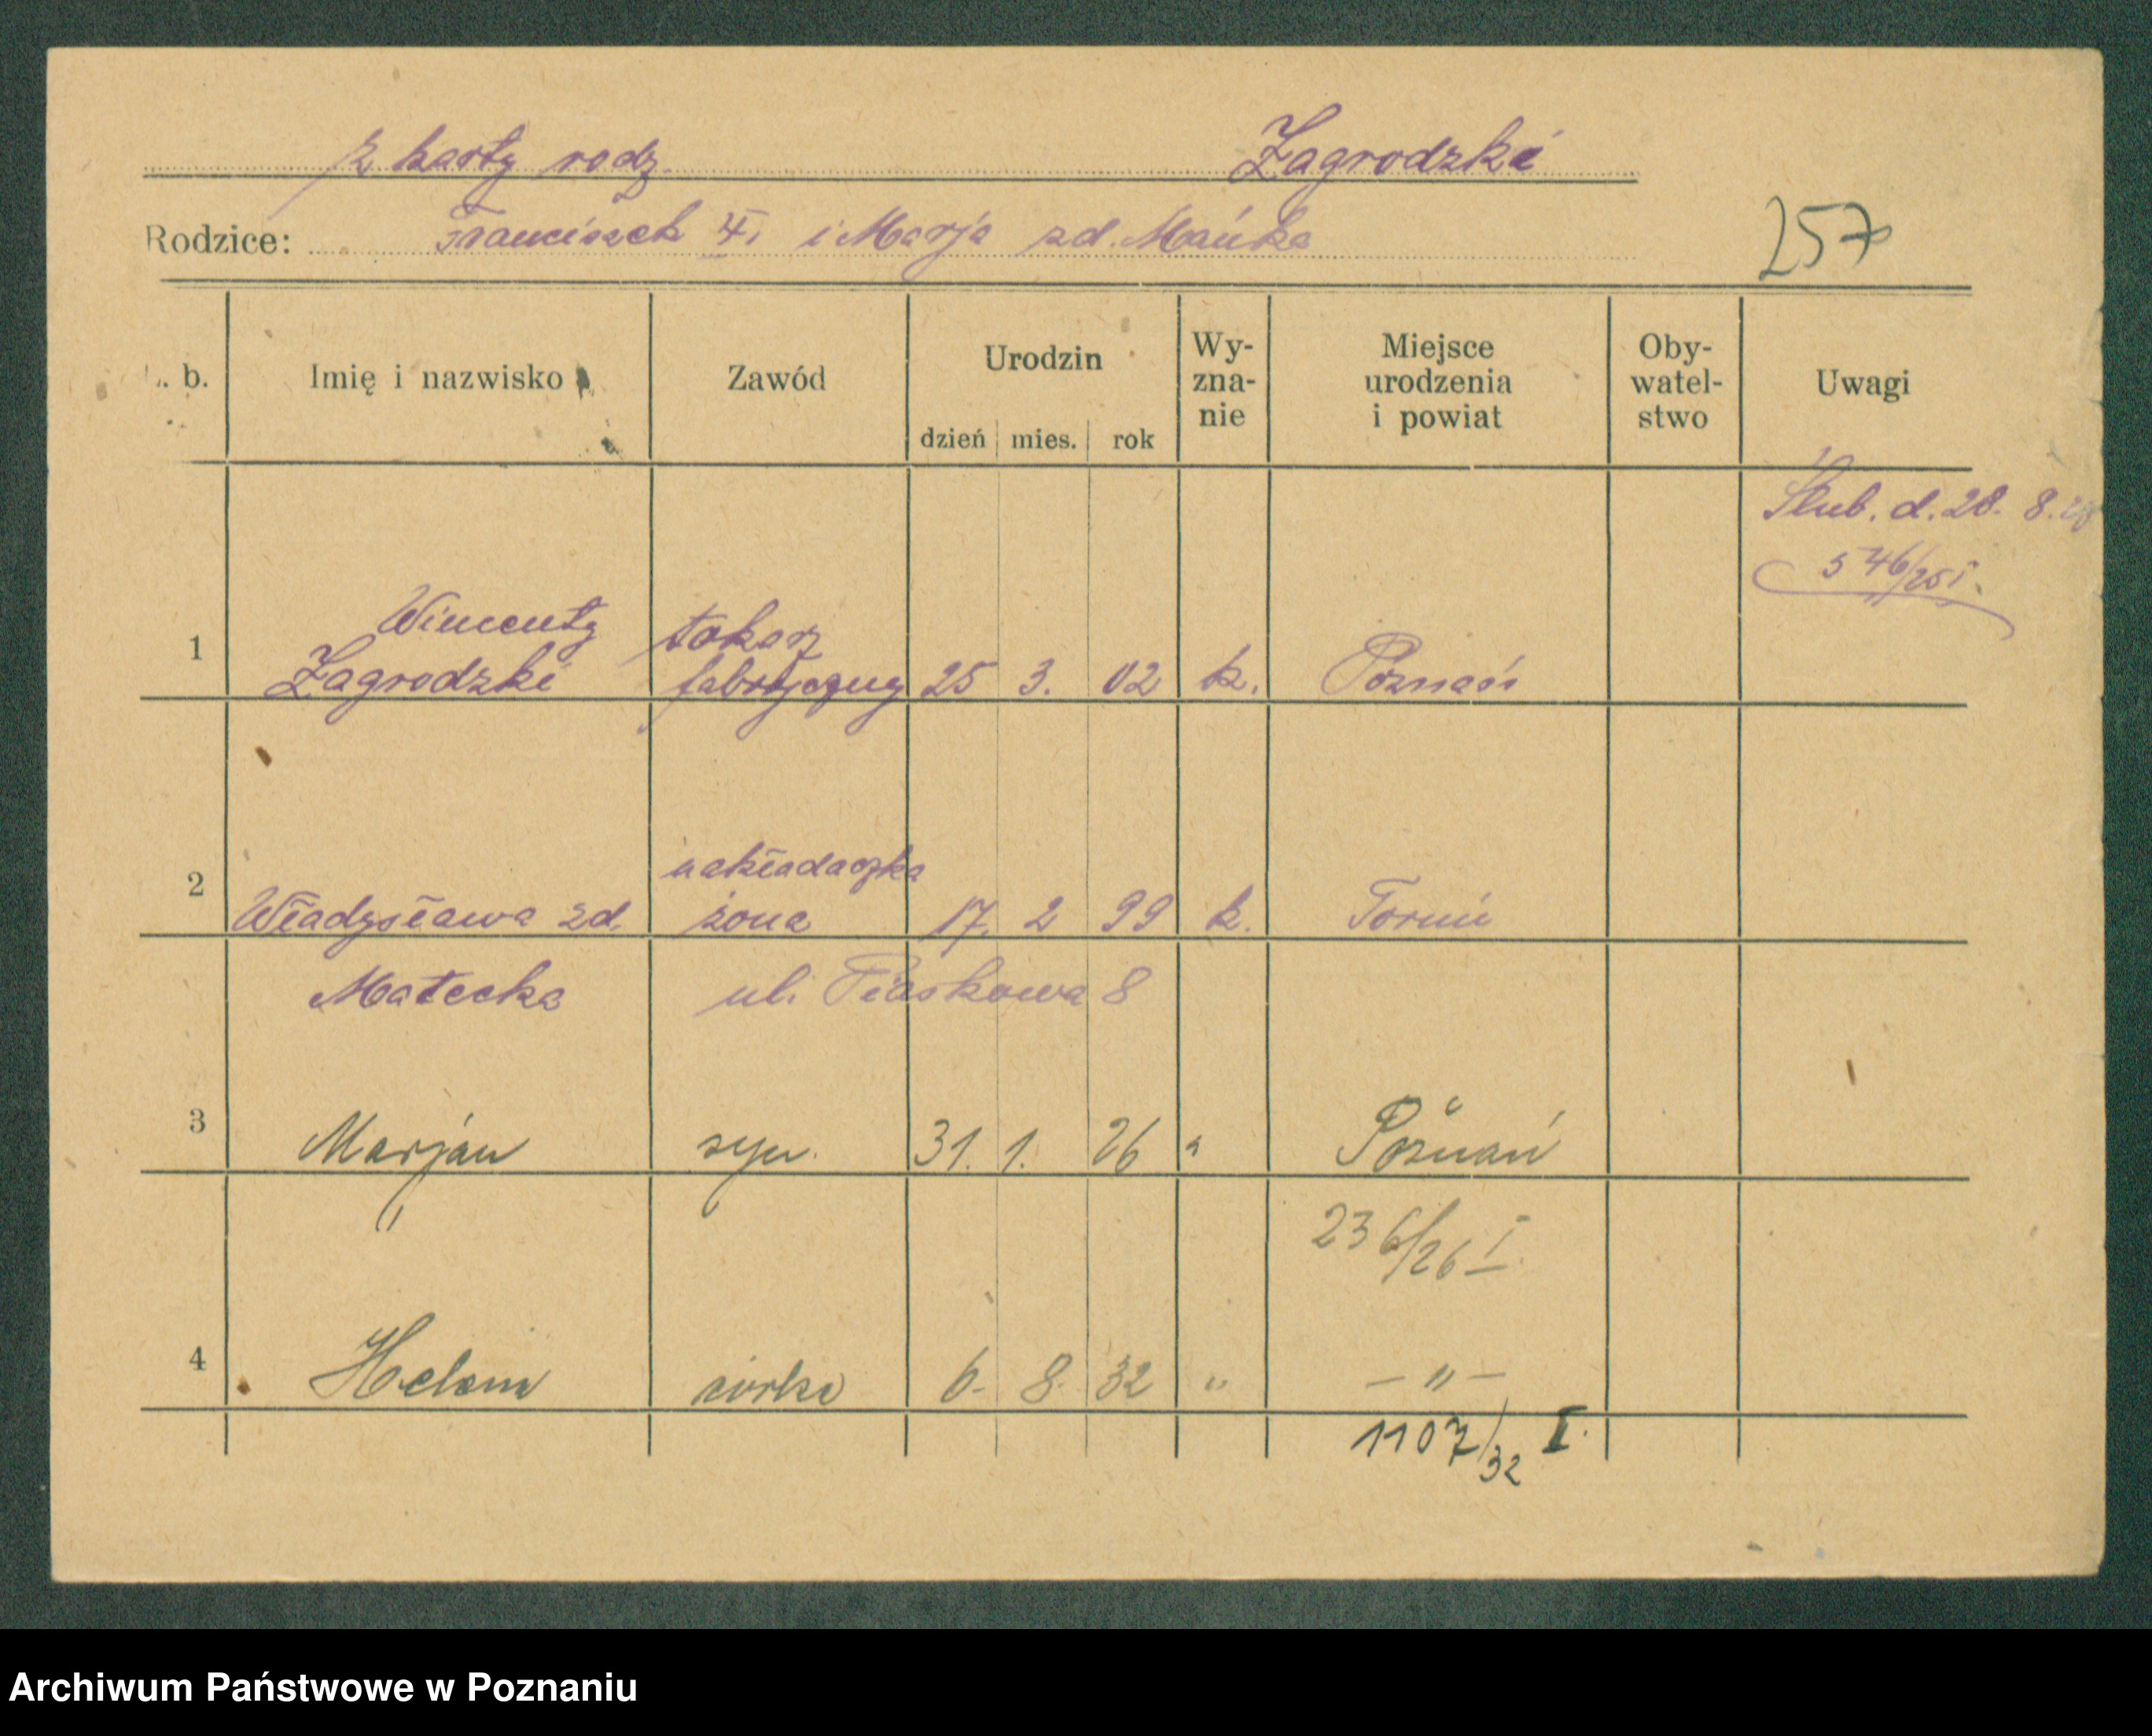 z karty rodz. Zagrodzki
Rodzice: Franciszek i Marja zd. Mańka
257
L. b. Imię i nazwisko Zawód Urodzin dzień mies. rok Wyznanie Miejsce urodzenia i powiat Obywatelstwo Uwagi
Ślub. d. 28. 8.
546/25 I.
1 Wincenty Zagrodzki tokarz fabryczny 25 3. 02 k. Poznań
2 Władysława zd. nakładaczka żona 17. 2 99 k. Toruń
Małecka ul. Piaskowa 8
3 Marjan syn. 31. 1. 26 " Poznań
236/26 I.
4 Helena córka 6. 8. 32 " — " —
1107/32 I.
Archiwum Państwowe w Poznaniu